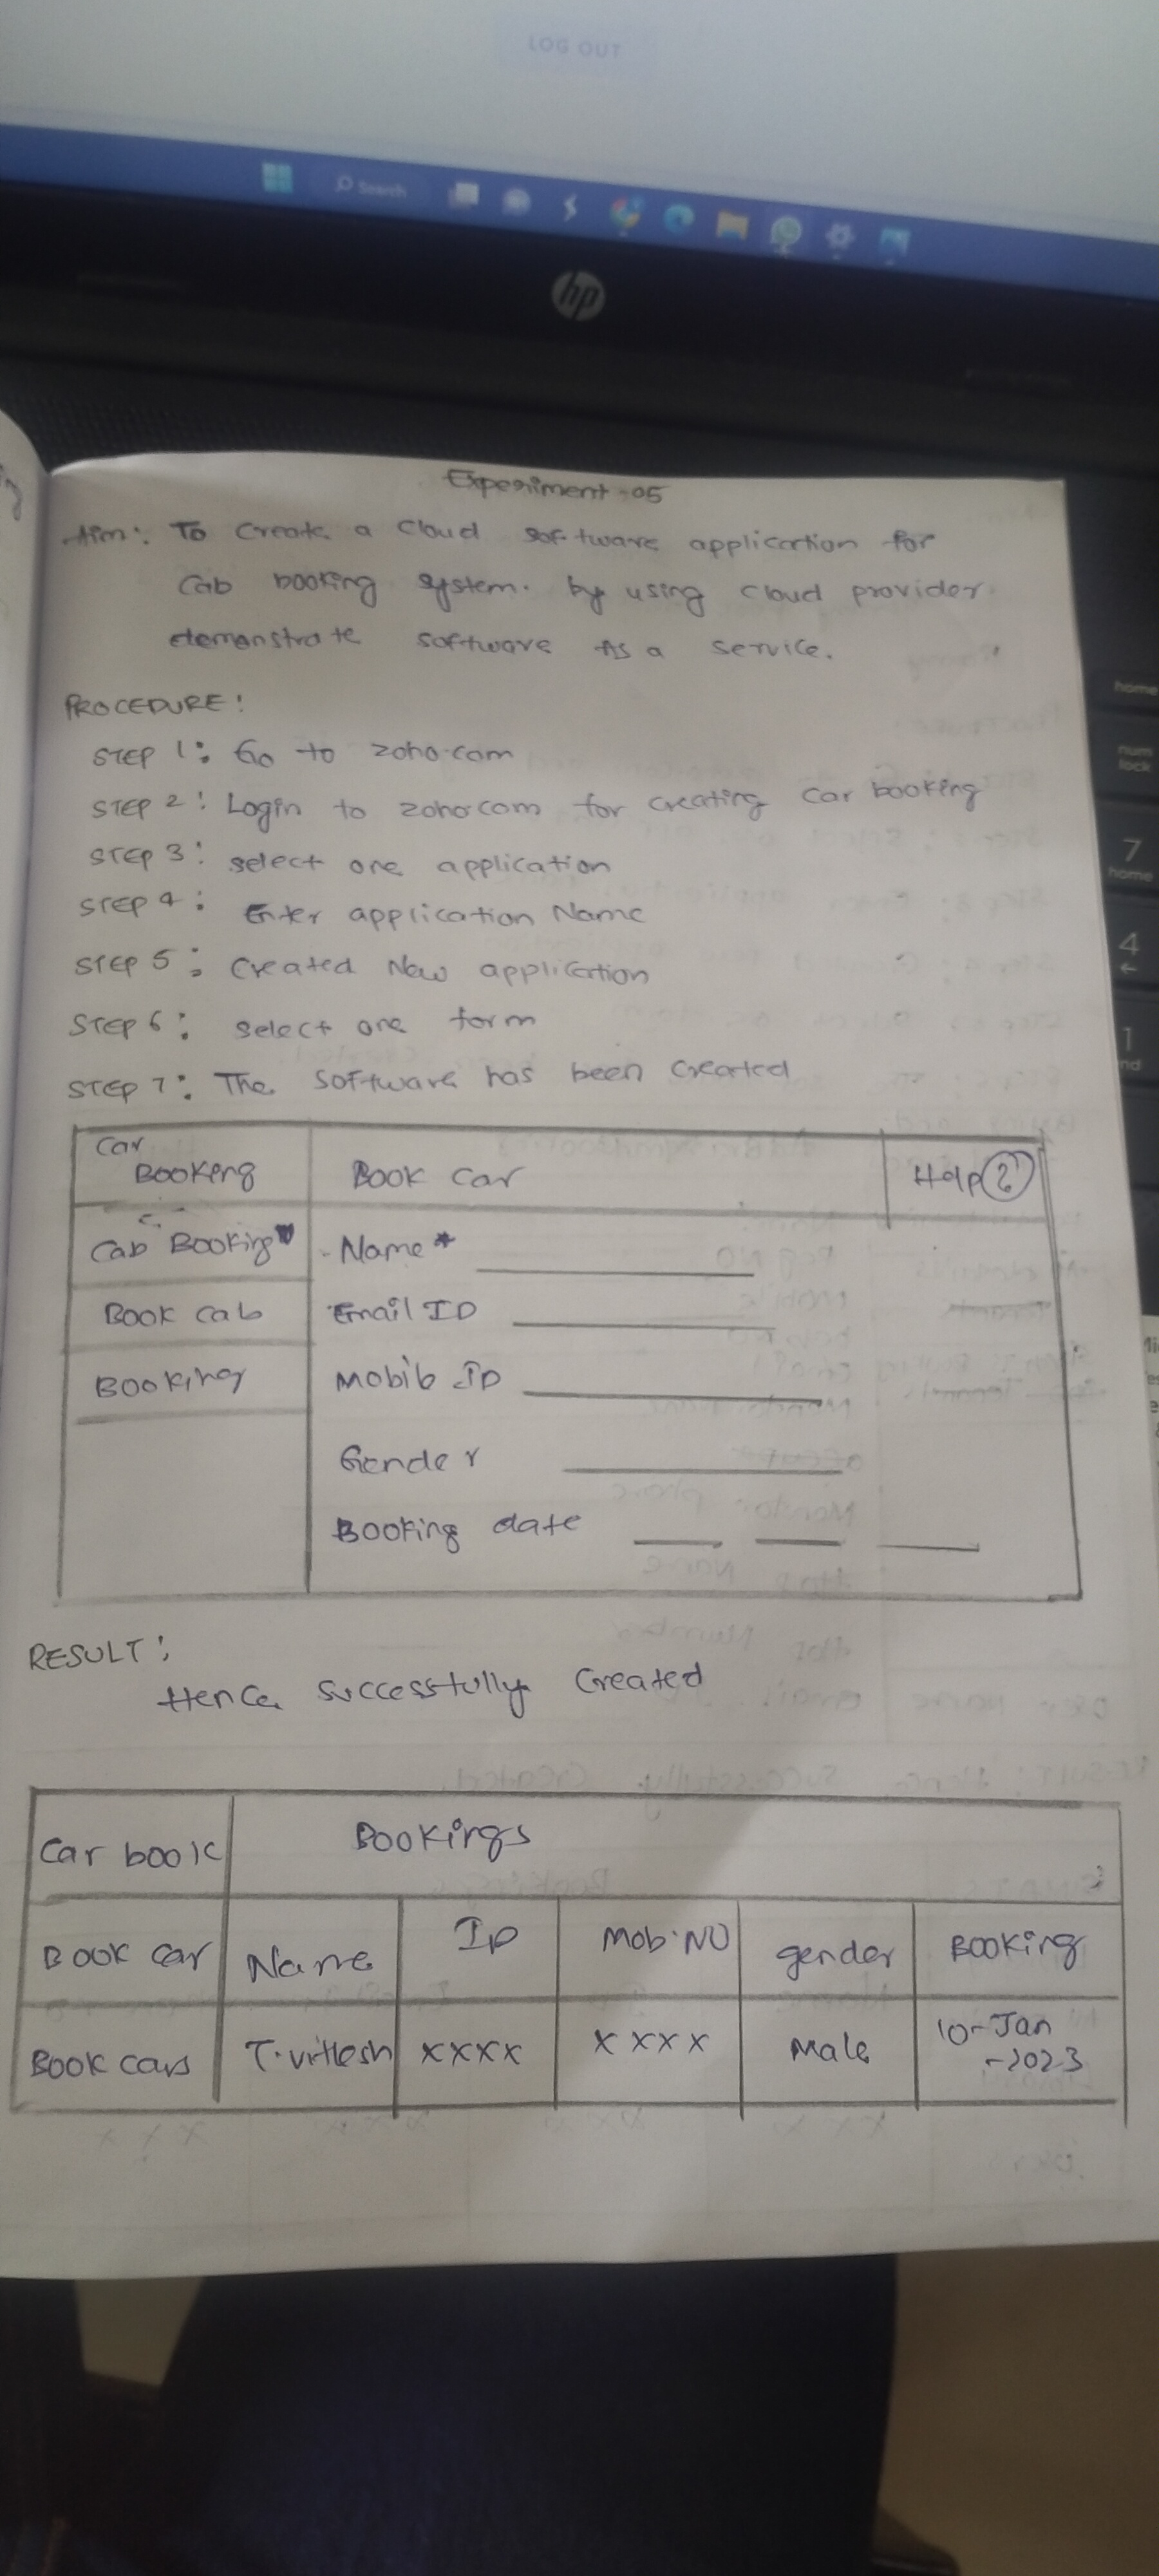 LOG OUT
Search
hp
Experiment-05
Aim: To Create a Cloud software application for
Cab booking system. by using cloud provider
demonstrate software As a service.
PROCEDURE:
STEP 1: Go to zoho.com
STEP 2: Login to zoho.com for creating Car booking
STEP 3: select one application
STEP 4: Enter application Name
STEP 5: Created New application
STEP 6: select one form
STEP 7: The software has been created
Car
Booking Book Car Help ?
Cab Booking Name*
Book cab Email ID
Booking Mobib ID
Gender
Booking date
RESULT:
Hence Successfully Created
Car book Bookings
Book car Name ID Mob.NO gender Booking
Book cars T. XXXX XXXX Male 10-Jan
-2023
home
num
lock
7
home
4
←
1